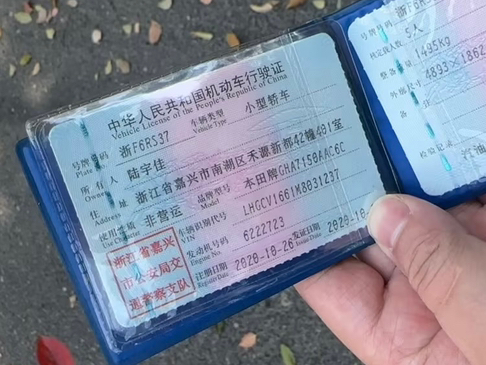 中华人民共和国机动车行驶证
Vehicle License of the People's Republic of China
号牌号码 浙F6RS37 车辆类型 小型轿车
Plate No. Vehicle Type
所有人 陆宇佳
Owner
住址 浙江省嘉兴市南湖区禾源新都42幢401室
Address
使用性质 非营运 品牌型号 本田牌GHA7150AAC6C
Use Character Model
车辆识别代号 LHGCV1661M8031237
VIN
发动机号码 6222723
Engine No.
注册日期 2020-10-26 发证日期 2020-10-
Register Date Issue Date
浙江省嘉兴
市公安局交
通警察支队
号牌号码 浙F6R
核定载人数 5人
整备质量 1495kg
外廓尺寸 4893×1862
检验记录
汽油